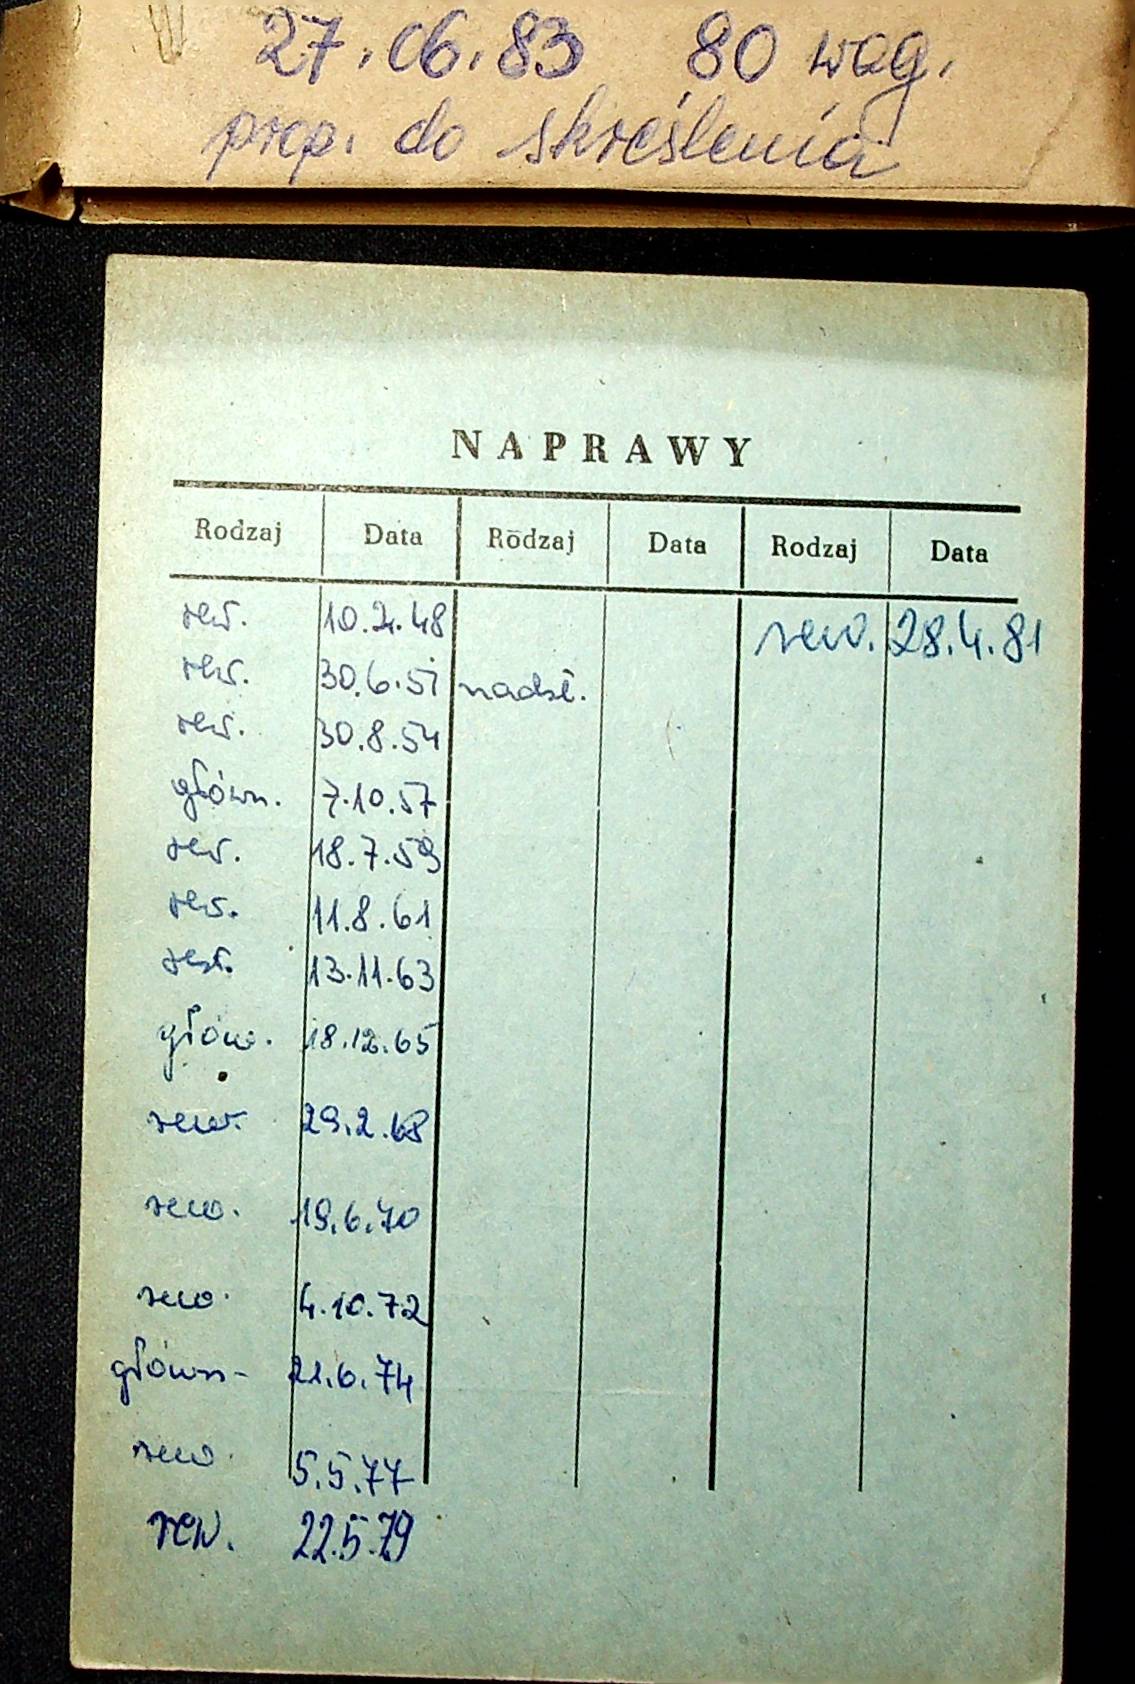 27.06.83 80 wag.
prop. do skreślenia
NAPRAWY
Rodzaj Data Rodzaj Data Rodzaj Data
rew. 10.2.48 rew. 28.4.81
rew. 30.6.51 nadzł.
rew. 30.8.54
główn. 7.10.57
rew. 18.7.59
rew. 11.8.61
rew. 13.11.63
głów. 18.12.65
rew. 29.2.68
rew. 19.6.70
rew. 4.10.72
główn- 21.6.74
rew. 5.5.77
rew. 22.5.79